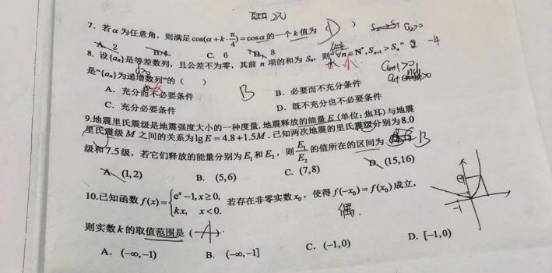 7. 若 α 为任意角，则满足 cos(α + k·π/4) = cosα 的一个 k 值为 ( D )
A. 2 B. 4 C. 6 D. 8
8. 设{aₙ}是等差数列，且公差不为零，其前 n 项的和为 Sₙ，则“∀n∈N*，Sₙ₊₁ > Sₙ”
是“{aₙ}为递增数列”的 ( ) B
A. 充分而不必要条件 B. 必要而不充分条件
C. 充分必要条件 D. 既不充分也不必要条件
9.地震里氏震级是地震强度大小的一种度量.地震释放的能量 E (单位：焦耳)与地震
里氏震级 M 之间的关系为lg E = 4.8 + 1.5M . 已知两次地震的里氏震级分别为8.0
级和 7.5 级，若它们释放的能量分别为 E₁ 和 E₂，则 E₁/E₂ 的值所在的区间为 B
A. (1,2) B. (5,6) C. (7,8) D. (15,16)
10.已知函数 f(x) = { eˣ − 1, x ≥ 0, kx, x < 0. 若存在非零实数 x₀，使得 f(−x₀) = f(x₀) 成立，
偶.
则实数 k 的取值范围是 ( A )
A. (−∞,−1) B. (−∞,−1] C. (−1,0) D. [−1,0)